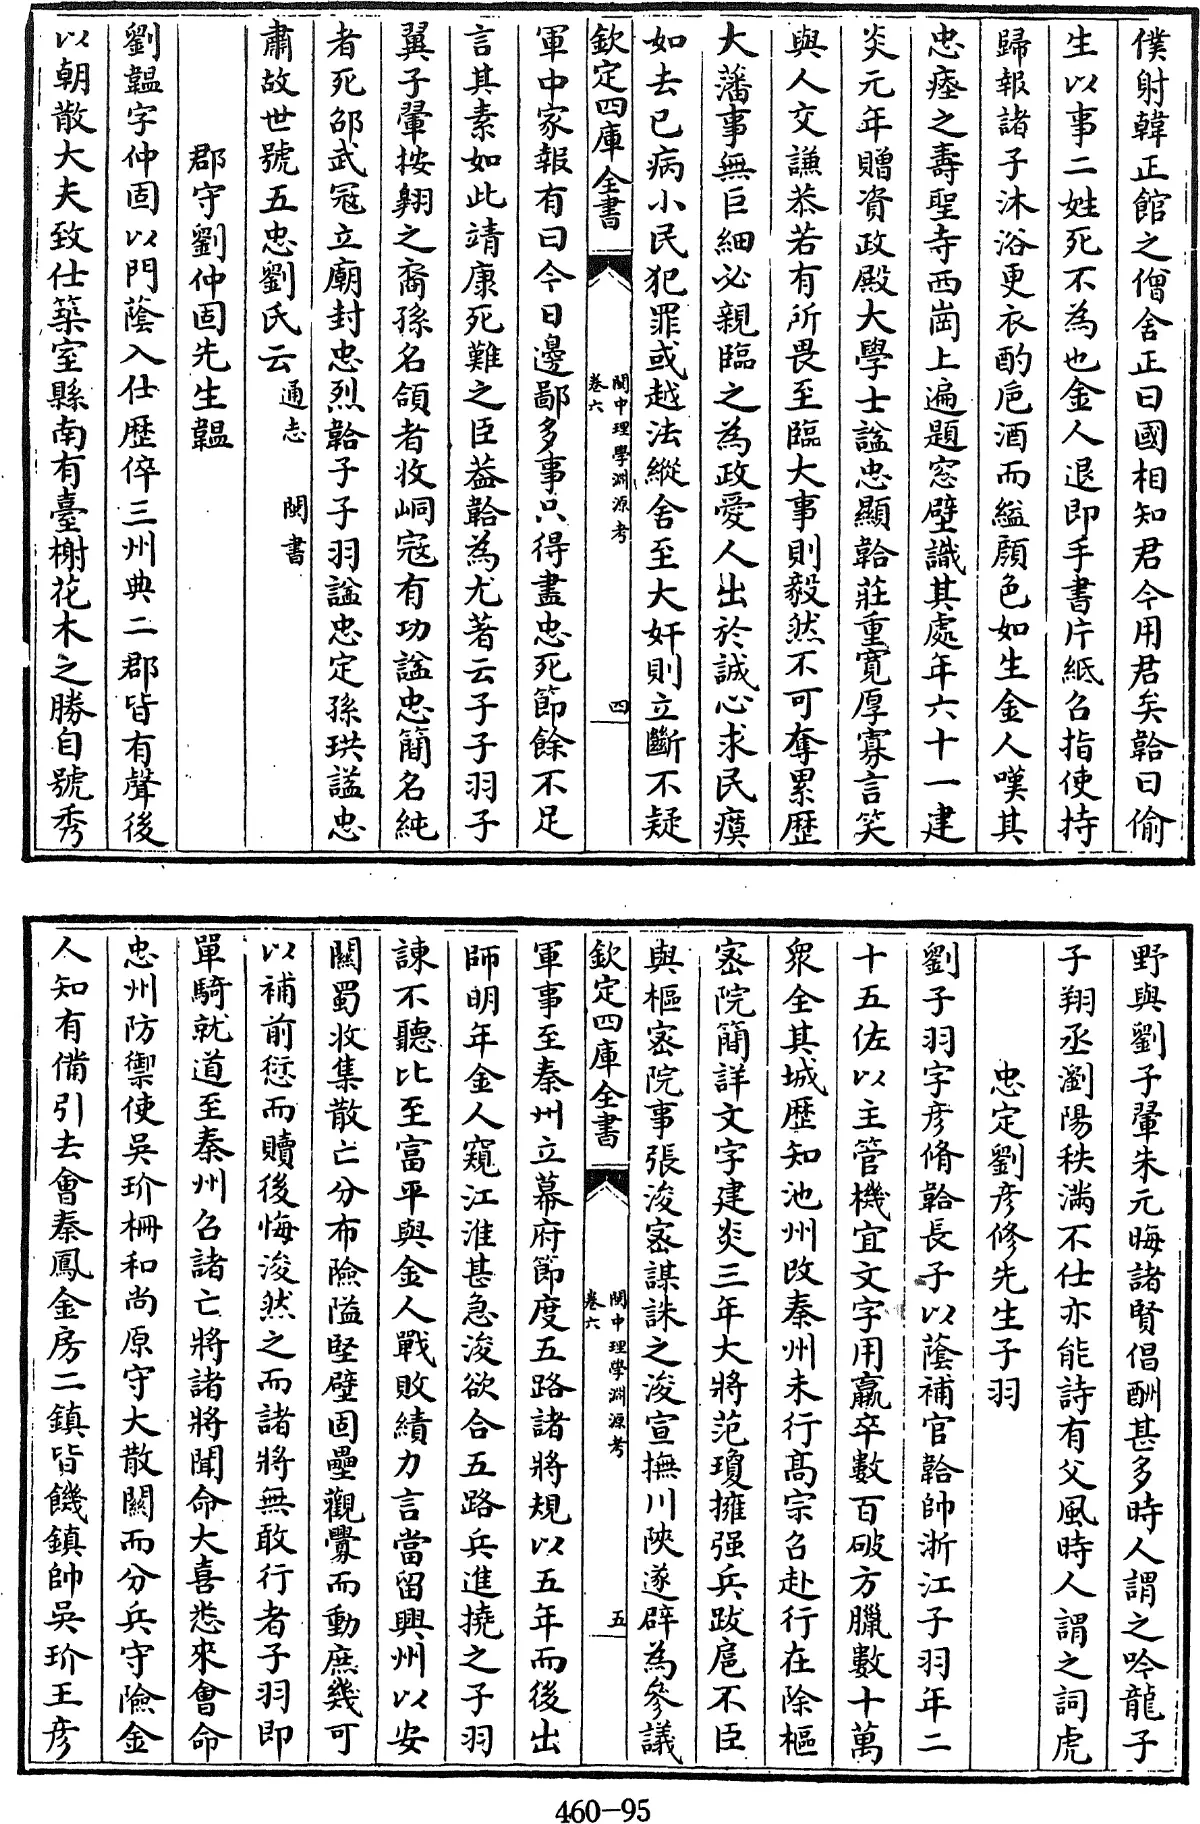 僕射韓正館之僧舍正曰國相知君今用君矣韐曰偷
生以事二姓死不為也金人退即手書片紙召指使持
歸報諸子沐浴更衣酌巵酒而縊顏色如生金人嘆其
忠瘞之壽聖寺西崗上遍題窓壁識其處年六十一建
炎元年贈資政殿大學士諡忠顯韐莊重寛厚寡言笑
與人交謙恭若有所畏至臨大事則毅然不可奪累歴
大藩事無巨細必親臨之為政愛人出於誠心求民瘼
如去已病小民犯罪或越法縱舍至大奸則立斷不疑
欽定四庫全書
閩中理學淵源考
卷六
四
軍中家報有曰今日邊鄙多事只得盡忠死節餘不足
言其素如此靖康死難之臣葢韐為尤著云子子羽子
翼子翬按翱之裔孫名頜者收峒冦有功諡忠簡名純
者死邵武冦立廟封忠烈韐子子羽諡忠定孫珙諡忠
肅故世號五忠劉氏云通志 閩書
郡守劉仲固先生韞
劉韞字仲固以門蔭入仕歴倅三州典二郡皆有聲後
以朝散大夫致仕築室縣南有臺榭花木之勝自號秀
野與劉子翬朱元晦諸賢倡酬甚多時人謂之吟龍子
子翔丞瀏陽秩滿不仕亦能詩有父風時人謂之詞虎
忠定劉彦修先生子羽
劉子羽字彦脩韐長子以蔭補官韐帥浙江子羽年二
十五佐以主管機宜文字用羸卒數百破方臘數十萬
衆全其城歴知池州改秦州未行髙宗召赴行在除樞
宻院簡詳文字建炎三年大將范瓊擁强兵跋扈不臣
與樞宻院事張浚宻謀誅之浚宣撫川陝遂辟為參議
欽定四庫全書
閩中理學淵源考
卷六
五
軍事至秦州立幕府節度五路諸將規以五年而後出
師明年金人窺江淮甚急浚欲合五路兵進撓之子羽
諌不聽比至富平與金人戰敗績力言當留興州以安
關蜀收集散亡分布險隘堅壁固壘觀釁而動庶幾可
以補前愆而贖後悔浚然之而諸將無敢行者子羽即
單騎就道至秦州召諸亡將諸將聞命大喜悉來會命
忠州防禦使吳玠柵和尚原守大散關而分兵守險金
人知有備引去會秦鳳金房二鎮皆饑鎮帥吳玠王彦
460-95